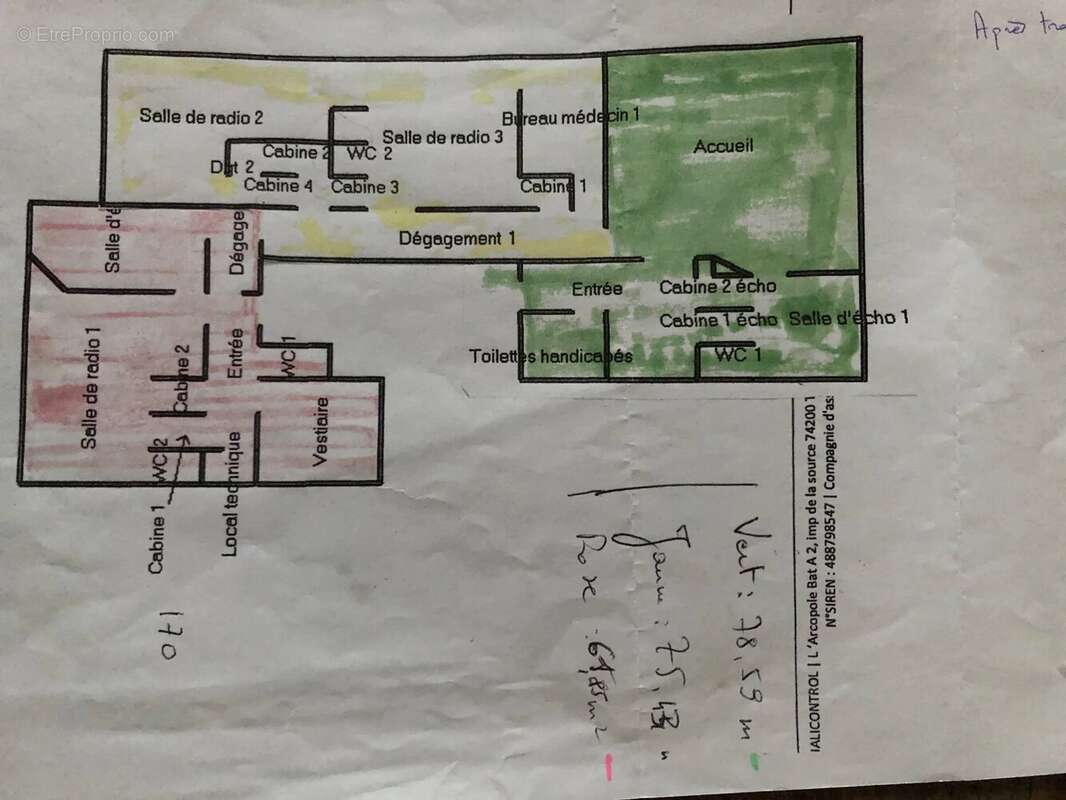 © EtreProprio.com
Après
Salle de radio 2
Bureau médecin 1
Salle de radio 3
Accueil
Cabine 2
WC 2
Cabine 4
Cabine 3
Cabine 1
Dégagement 1
Salle d'é
Dégage
Entrée
Cabine 2 écho
Cabine 1 écho
Salle d'écho 1
Toilettes handicapés
WC 1
Salle de radio 1
Cabine 2
Entrée
WC 1
Vestiaire
WC 2
Local technique
Cabine 1
170
Vert : 78,59 m
Jaune : 75,43 "
Rose : 61,85 m2
IALICONTROL | L'Arcopole Bat A 2, imp de la source 74200 T
N°SIREN : 488798547 | Compagnie d'as